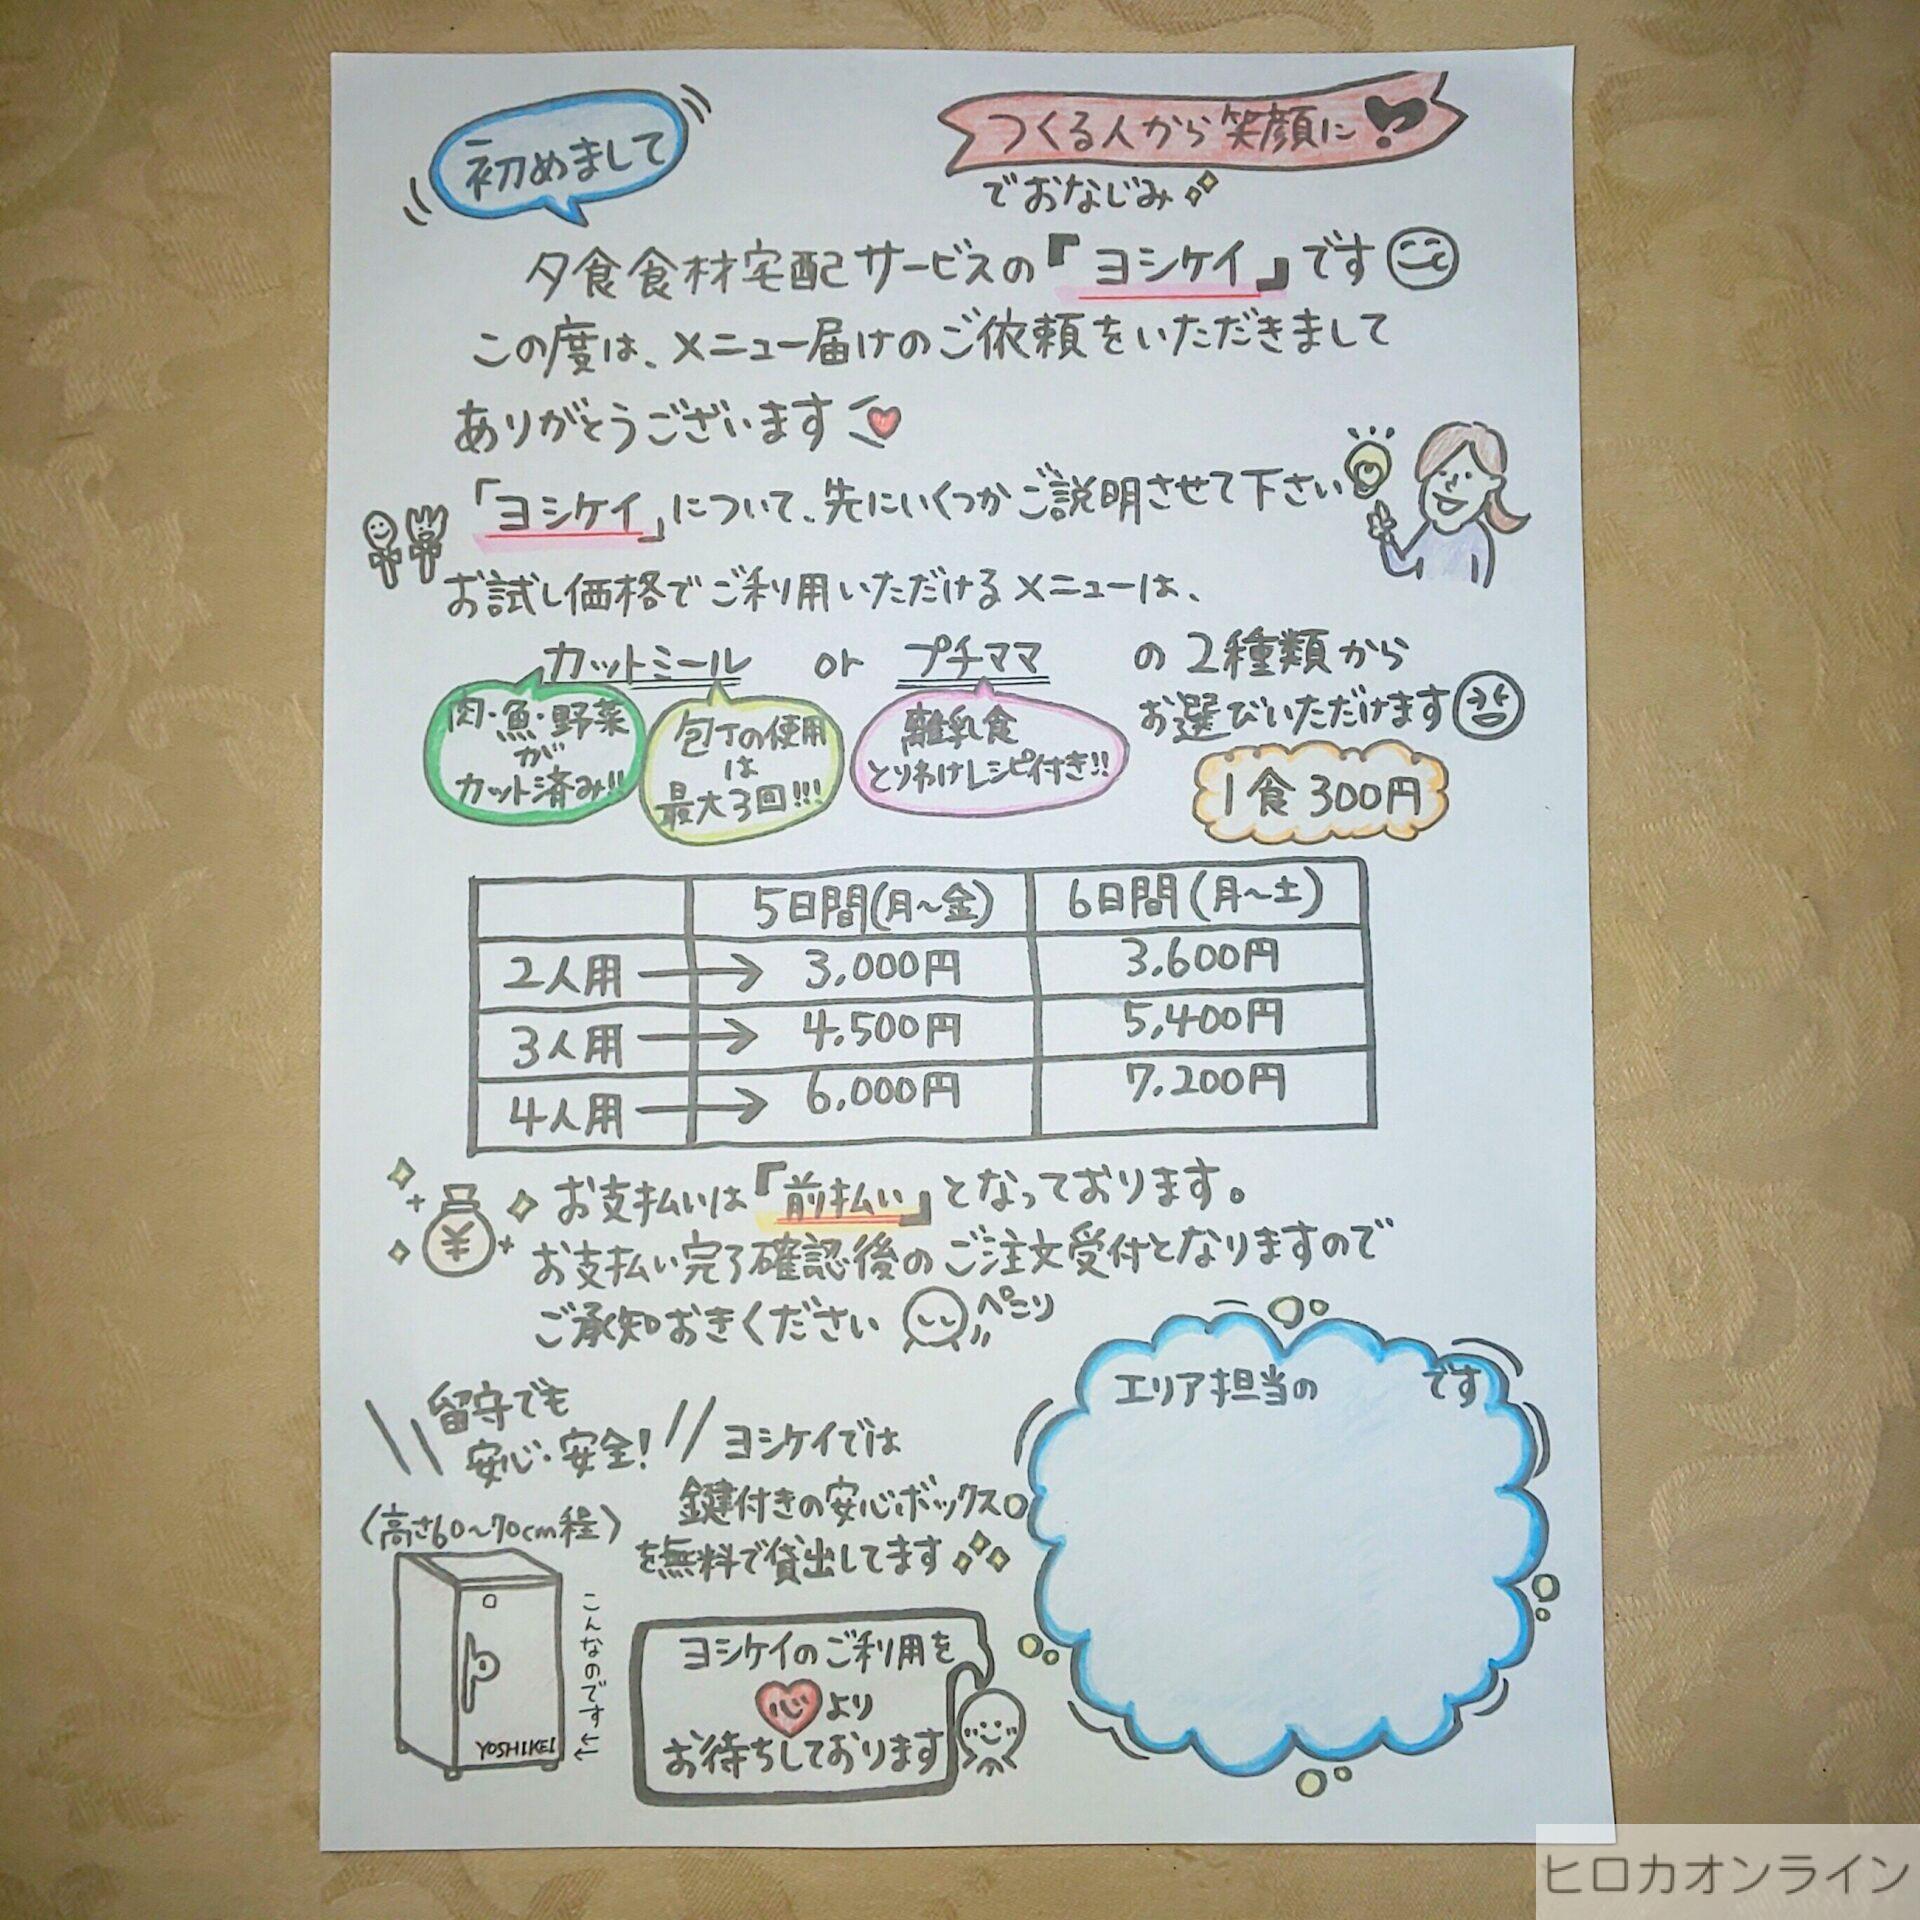 初めまして
つくる人から笑顔に
でおなじみ
夕食食材宅配サービスの『ヨシケイ』です
この度は、メニュー届けのご依頼をいただきまして
ありがとうございます
「ヨシケイ」について、先にいくつかご説明させて下さい
お試し価格でご利用いただけるメニューは、
カットミール or プチママ の2種類から
お選びいただけます
肉・魚・野菜
が
カット済み!!
包丁の使用
は
最大3回!!!
離乳食
とりわけレシピ付き!!
1食300円
5日間(月~金) 6日間(月~土)
2人用 → 3,000円 3,600円
3人用 → 4,500円 5,400円
4人用 → 6,000円 7,200円
¥
お支払いは『前払い』となっております。
お支払い完了確認後のご注文受付となりますので
ご承知おきください
ペこり
エリア担当の です
留守でも
安心・安全!
ヨシケイでは
鍵付きの安心ボックス
を無料で貸出してます
(高さ60~70cm程)
こんなのです
YOSHIKEI
ヨシケイのご利用を
心より
お待ちしております
ヒロカオンライン